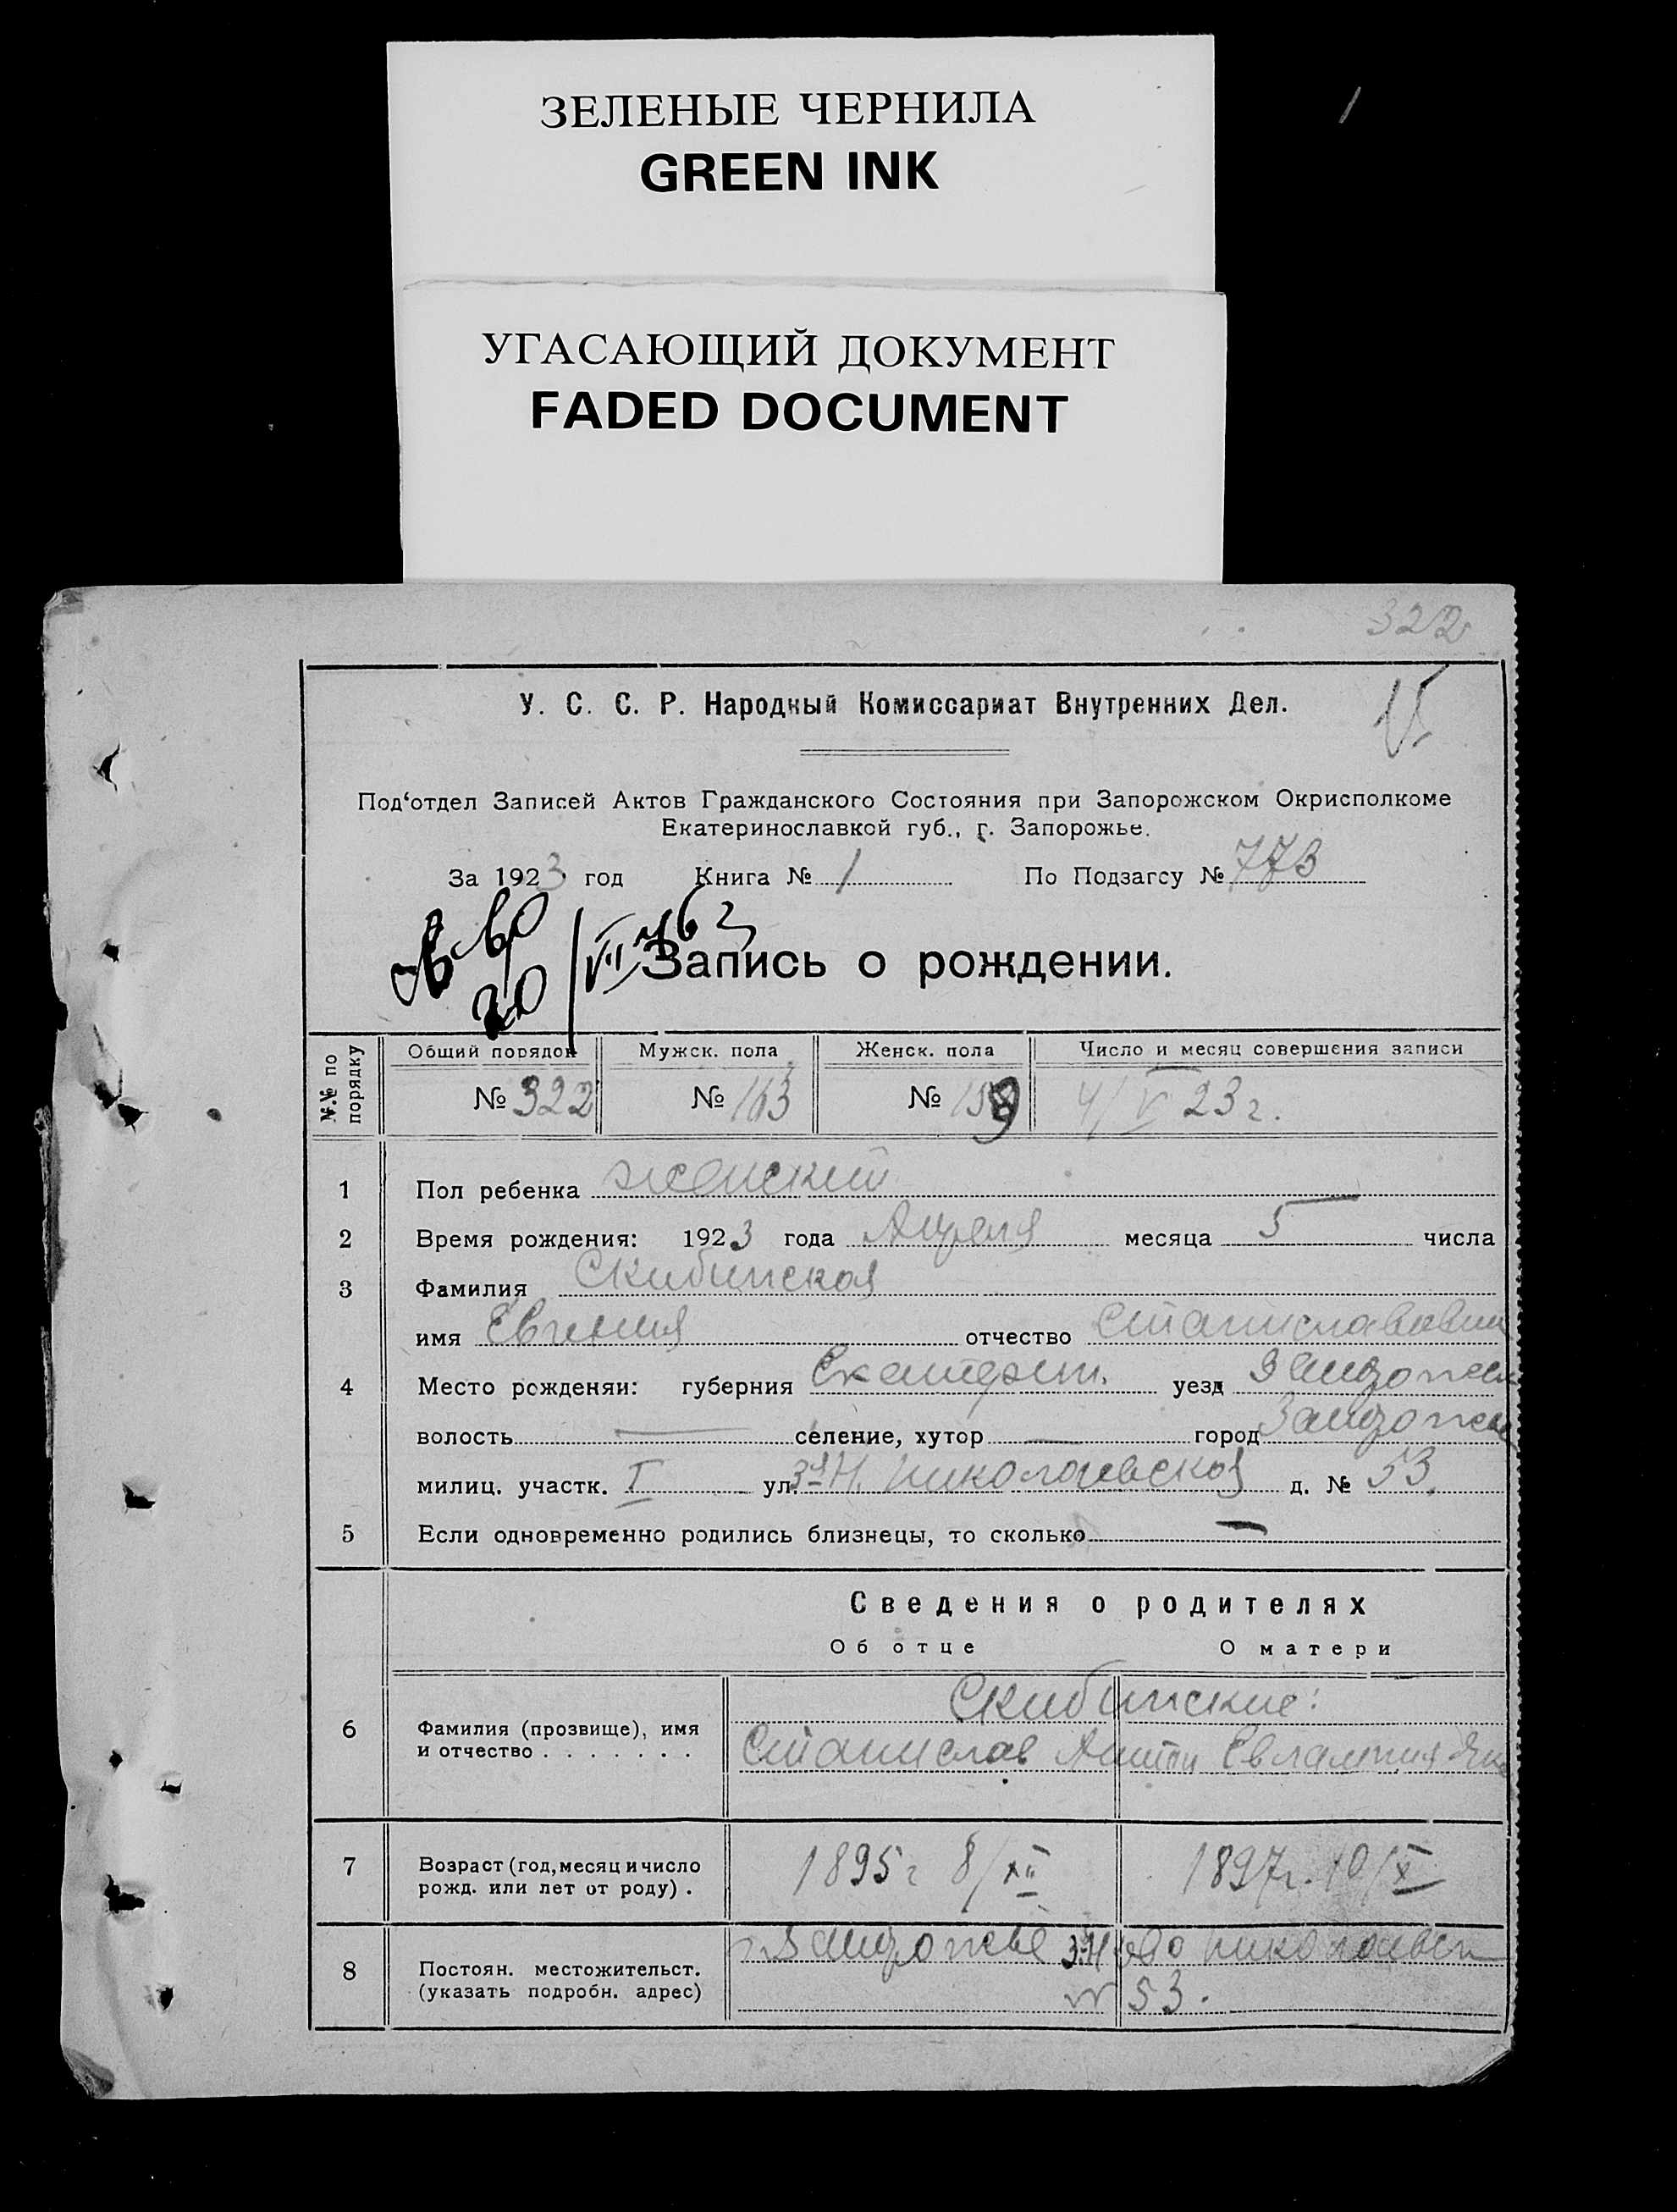 ЗЕЛЕНЫЕ ЧЕРНИЛА
GREEN INK
УГАСАЮЩИЙ ДОКУМЕНТ
FADED DOCUMENT
322
15
У. С. С. Р. Народный Комиссариат Внутренних Дел.
Под‘отдел Записей Актов Гражданского Состояния при Запорожском Окрисполкоме
Екатеринославкой губ., г. Запорожье.
За 1923 год Книга № 1 По Подзагсу № 773
20/VII
Запись о рождении.
№№ по порядку
Общий порядок Мужск. пола Женск. пола Число и месяц совершения записи
№ 322 № 163 № 159 4/V 23 г.
1 Пол ребенка женский
2 Время рождения: 1923 года Апреля месяца 5 числа
3 Фамилия Скибинская
имя Евгения отчество Станиславовн
4 Место рожденяи: губерния Екатерин. уезд Запорожск
волость — селение, хутор — город Запорожье
милиц. участк. I ул. 3я Н. Николаевская д. № 53.
5 Если одновременно родились близнецы, то сколько —
Сведения о родителях
Об отце О матери
Скибинские:
6 Фамилия (прозвище), имя
и отчество . . . . . . . Станислав Антон Евлампия
7 Возраст (год, месяц и число
рожд. или лет от роду) . 1895 г 8/XII 1897 г. 10/X
8 Постоян. местожительст.
(указать подробн. адрес) г. Запорожье 3я Ново Николаевск
№ 53.